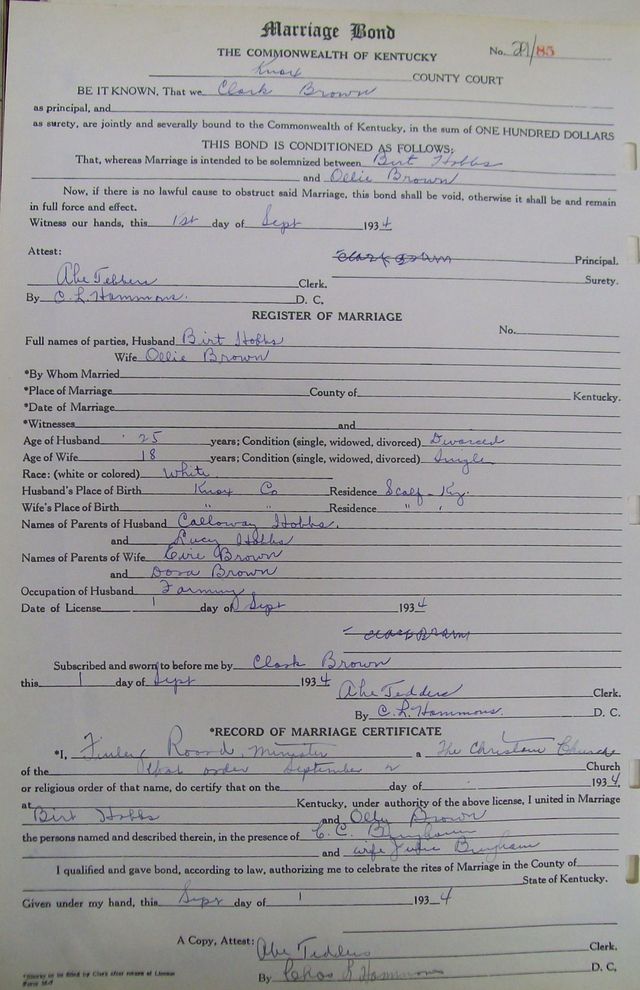 Marriage Bond
THE COMMONWEALTH OF KENTUCKY No. /85
Knox COUNTY COURT
BE IT KNOWN, That we Clark Brown
as principal, and
as surety, are jointly and severally bound to the Commonwealth of Kentucky, in the sum of ONE HUNDRED DOLLARS
THIS BOND IS CONDITIONED AS FOLLOWS:
That, whereas Marriage is intended to be solemnized between Birt Hobbs
and Ollie Brown
Now, if there is no lawful cause to obstruct said Marriage, this bond shall be void, otherwise it shall be and remain
in full force and effect.
Witness our hands, this 1st day of Sept 1934
Attest: Clark Brown Principal.
Abe Tedders Clerk. Surety.
By C. L. Hammons. D. C.
REGISTER OF MARRIAGE
No.
Full names of parties, Husband Birt Hobbs
Wife Ollie Brown
*By Whom Married
*Place of Marriage County of Kentucky.
*Date of Marriage
*Witnesses and
Age of Husband 25 years; Condition (single, widowed, divorced) Divorced
Age of Wife 18 years; Condition (single, widowed, divorced) Single
Race: (white or colored) White
Husband's Place of Birth Knox Co Residence Scalf - Ky.
Wife's Place of Birth " " Residence " "
Names of Parents of Husband Calloway Hobbs.
and Lucy Hobbs
Names of Parents of Wife Evie Brown
and Dora Brown
Occupation of Husband Farming
Date of License 1 day of Sept 1934
Clark Brown
Subscribed and sworn to before me by Clark Brown
this 1 day of Sept 1934 Abe Tedders Clerk.
By C. L. Hammons. D. C.
*RECORD OF MARRIAGE CERTIFICATE
*I, Finley Minister a The Christian Church
of the order September 2 Church
or religious order of that name, do certify that on the day of 1934
at Kentucky, under authority of the above license, I united in Marriage
Birt Hobbs and Olly Brown
the persons named and described therein, in the presence of C. C. Bingham
and wife Julie Bingham
I qualified and gave bond, according to law, authorizing me to celebrate the rites of Marriage in the County of
State of Kentucky.
Given under my hand, this Sept day of 1 1934
A Copy, Attest: Abe Tedders Clerk.
By Chas L Hammons D. C.